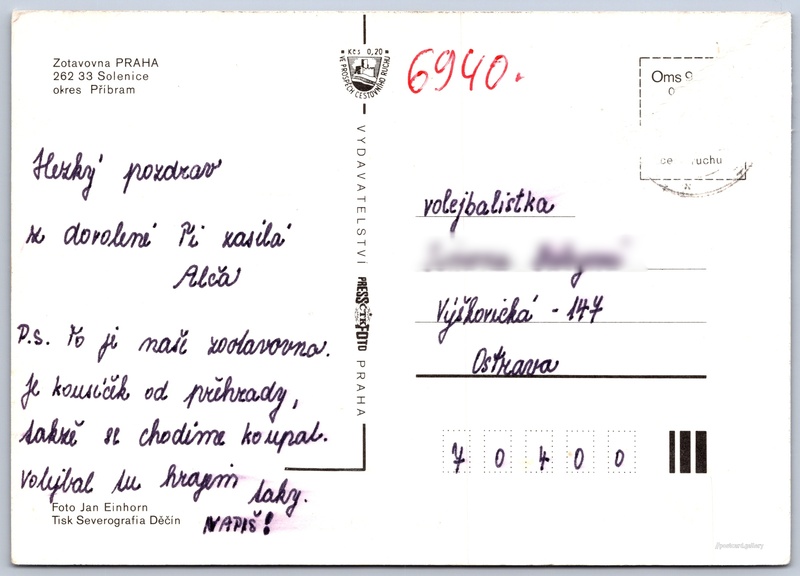 Zotavovna PRAHA
262 33 Solenice
okres Příbram
Hezký pozdrav
z dovolené Ti zasílá
Alča
P.S. To je naše zootavovna.
Je kousíček od přehrady,
takže se chodíme koupat.
Volejbal tu hrajem taky.
NAPIŠ!
Foto Jan Einhorn
Tisk Severografia Děčín
Kčs 0,20
VE PROSPĚCH CESTOVNÍHO RUCHU
VYDAVATELSTVÍ PRESSFOTO PRAHA
ČTK
6940.
Oms 9
ruchu
volejbalistka
Výškovická - 147
Ostrava
7 0 4 0 0
//postcard.gallery